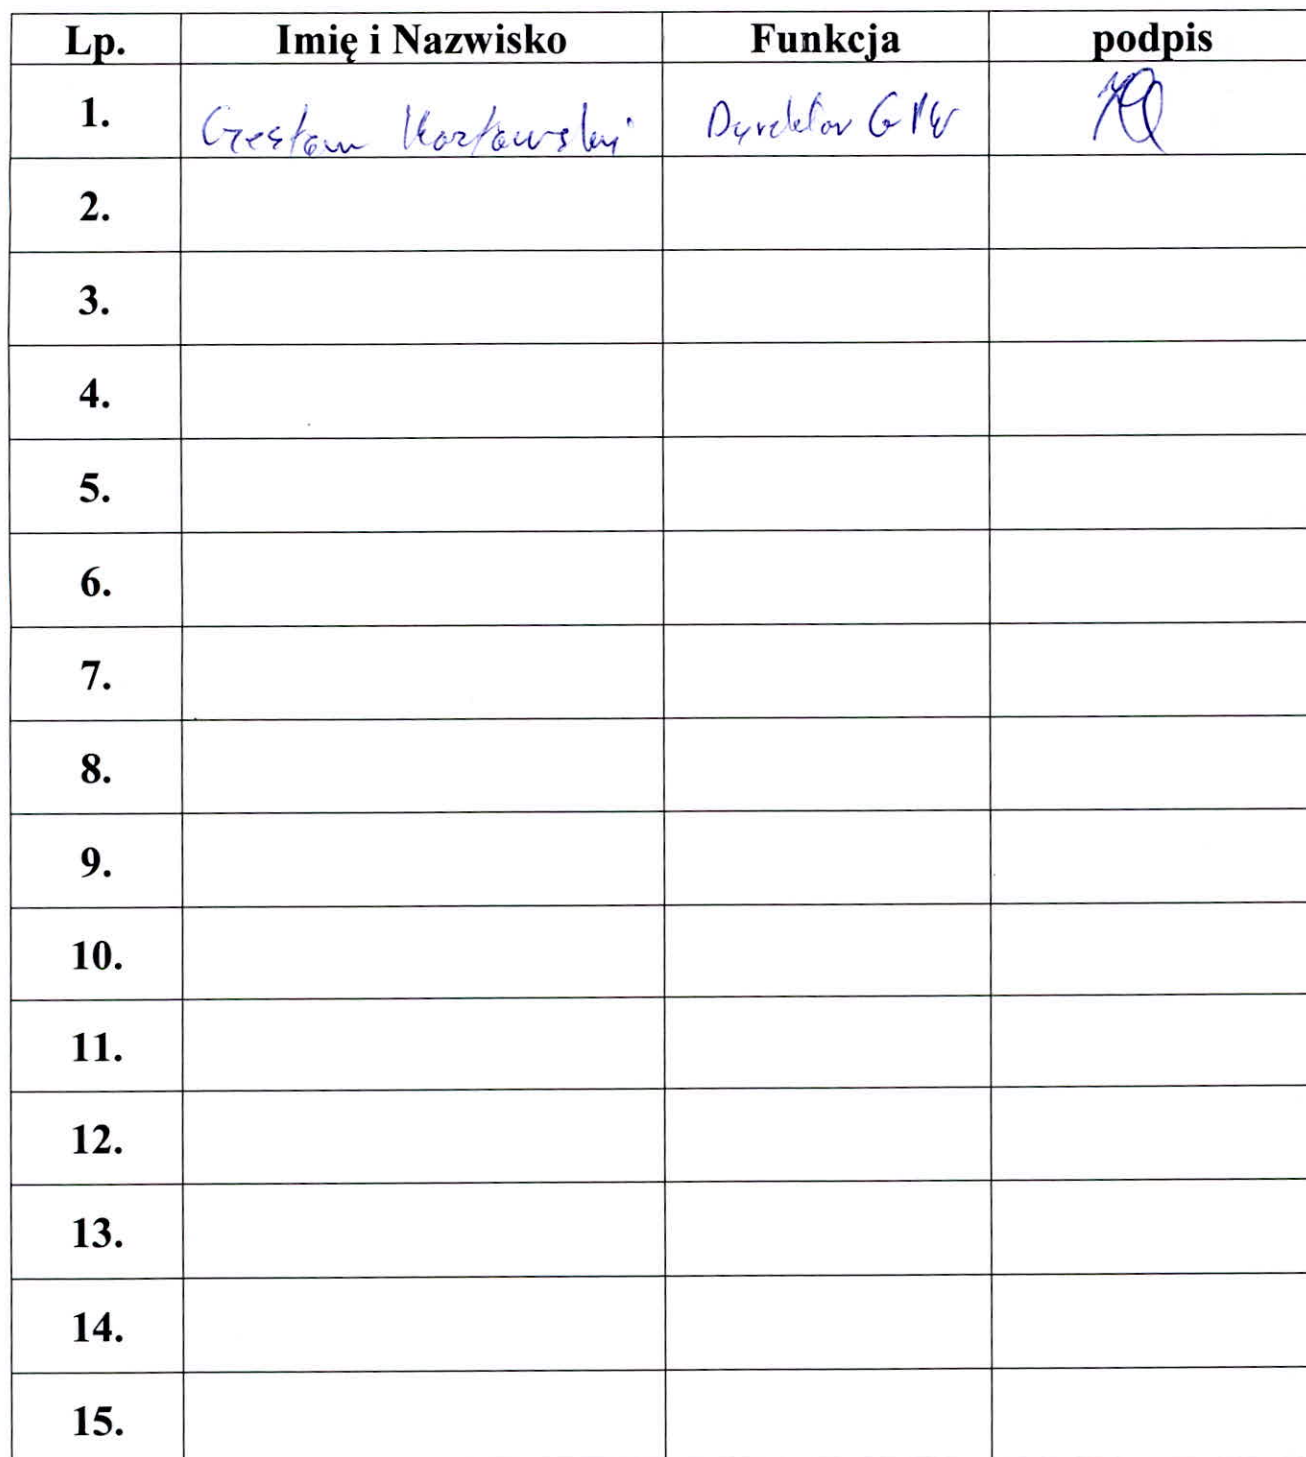 Lp. Imię i Nazwisko Funkcja podpis
1. Czesław Kozłowski Dyrektor
2.
3.
4.
5.
6.
7.
8.
9.
10.
11.
12.
13.
14.
15.